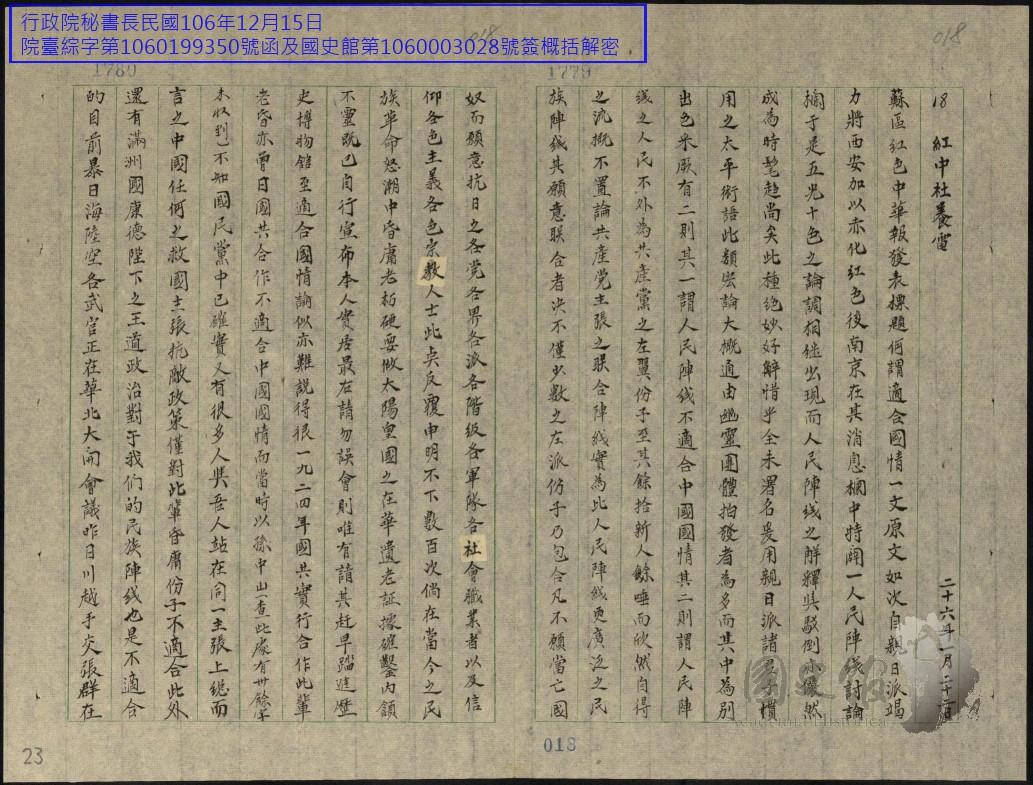 行政院秘書長民國106年12月15日
院臺綜字第1060199350號函及國史館第1060003028號簽概括解密
018
018
1780
1779
18 紅中社養電
二十六年一月二十二日
蘇區紅色中華報發表標題何謂適合國情一文原文如次自親日派竭
力將西安加以赤化紅色後南京在其消息欄中特闢一人民陣線討論
欄于是五光十色之論調相繼出現而人民陣線之解釋與駁倒小儼然
成為時髦趨尚矣此種絕妙好辭惜乎全未署名爰用親日派諸君子慣
用之太平術語此類宏論大概適由幽靈團體拍發者為多而其中為別
出色采厥有二則其一謂人民陣線不適合中國國情其二則謂人民陣
線之人民不外為共產黨之左翼份子至其餘拾新人餘唾而欣然自得
之流概不置論共產党主張之联合陣线實為此人民陣线更廣泛之民
族陣线其願意联合者决不僅少数之左派份子乃包含凡不願當亡國
奴而願意抗日之各党各界各派各階級各軍隊各社會職業者以及信
仰各色主義各色宗教人士此点反覆申明不下数百次倘在當今之民
族革命怒潮中昏庸老朽硬要做太陽皇國之在華遺老証據確鑿內領
不靈既已自行宣布本人實居最左請勿誤會則唯有請其赶早踏進歷
史博物館至適合國情論似亦難說得很一九二四年國共實行合作此輩
老昏亦曾曰國共合作不適合中國國情而當時以孫中山一查此處有卅餘字
未收到已不知國民黨中已確實又有很多人與吾人站在同一主張上總而
言之中國任何之救國主張抗敵政策僅對此輩昏庸份子不適合此外
還有滿洲國康德陛下之王道政治對于我们的民族陣线也是不適合
的目前暴日海陸空各武官正在華北大開會議昨日川越手交張群在
國史館
Academia Historica
018
23